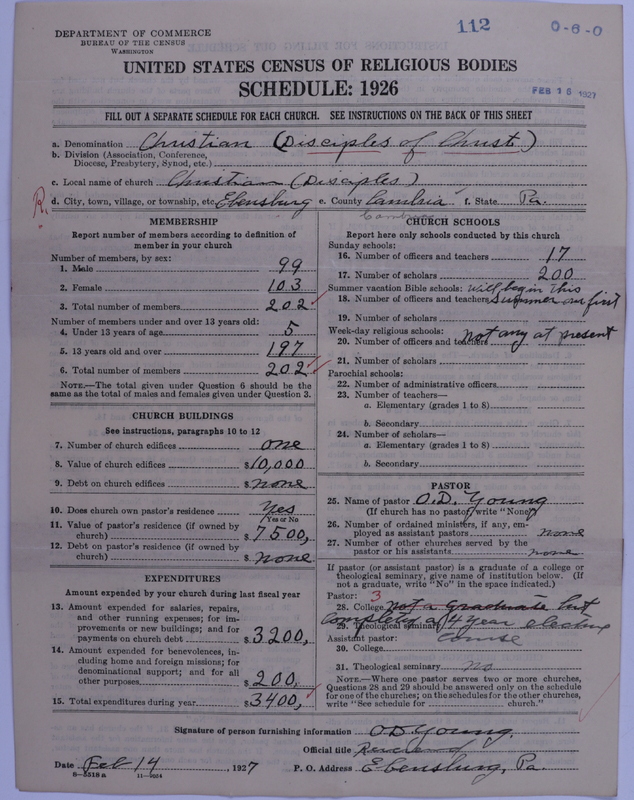 112
0-6-0
DEPARTMENT OF COMMERCE
BUREAU OF THE CENSUS
WASHINGTON
UNITED STATES CENSUS OF RELIGIOUS BODIES
SCHEDULE: 1926
FEB 15 1927
FILL OUT A SEPARATE SCHEDULE FOR EACH CHURCH. SEE INSTRUCTIONS ON THE BACK OF THIS SHEET
a. Denomination Christian (Disciples of Christ)
b. Division (Association, Conference, Diocese, Presbytery, Synod, etc.)
c. Local name of church Christian (Disciples)
R. d. City, town, village, or township, etc. Ebensburg e. County Cambria f. State Pa.
Cambria
MEMBERSHIP
Report number of members according to definition of
member in your church
Number of members, by sex:
1. Male 99
2. Female 103
3. Total number of members 202
Number of members under and over 13 years old:
4. Under 13 years of age 5
5. 13 years old and over 197
6. Total number of members 202
NOTE.—The total given under Question 6 should be the
same as the total of males and females given under Question 3.
CHURCH BUILDINGS
See instructions, paragraphs 10 to 12
7. Number of church edifices one
8. Value of church edifices $10,000
9. Debt on church edifices $none
10. Does church own pastor's residence? Yes
(Yes or No)
11. Value of pastor's residence (if owned by
church) $7500,
12. Debt on pastor's residence (if owned by
church) $none.
EXPENDITURES
Amount expended by your church during last fiscal year
13. Amount expended for salaries, repairs,
and other running expenses; for im-
provements or new buildings; and for
payments on church debt $3200,
14. Amount expended for benevolences, in-
cluding home and foreign missions; for
denominational support; and for all
other purposes $200,
15. Total expenditures during year $3400,
CHURCH SCHOOLS
Report here only schools conducted by this church
Sunday schools:
16. Number of officers and teachers 17
17. Number of scholars 200
Summer vacation Bible schools: Will begin this
18. Number of officers and teachers Summer our first
19. Number of scholars
Week-day religious schools: Not any at present
20. Number of officers and teachers
21. Number of scholars
Parochial schools:
22. Number of administrative officers
23. Number of teachers—
a. Elementary (grades 1 to 8)
b. Secondary
24. Number of scholars—
a. Elementary (grades 1 to 8)
b. Secondary
PASTOR
25. Name of pastor O.D. Young
(If church has no pastor, write "None")
26. Number of ordained ministers, if any, em-
ployed as assistant pastors none
27. Number of other churches served by the
pastor or his assistants none
If pastor (or assistant pastor) is a graduate of a college or
theological seminary, give name of institution below. (If
not a graduate, write "No" in the space indicated.)
Pastor: 3
28. College Not a graduate but
completed a 4 year elective
29. Theological seminary
Assistant pastor: course
30. College
31. Theological seminary No
NOTE.—Where one pastor serves two or more churches,
Questions 28 and 29 should be answered only on the schedule
for one of the churches; on the schedules for the other churches,
write "See schedule for church."
Signature of person furnishing information O D Young.
Official title Reverend
Date Feb 14, 1927 P. O. Address Ebensburg, Pa.
8—5516 a 11—9664